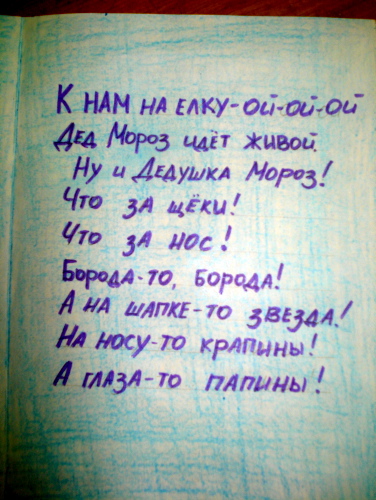 К НАМ НА ЕЛКУ-ОЙ-ОЙ-ОЙ
ДЕД МОРОЗ ИДЁТ ЖИВОЙ.
НУ И ДЕДУШКА МОРОЗ!
ЧТО ЗА ЩЁКИ!
ЧТО ЗА НОС!
БОРОДА-ТО, БОРОДА!
А НА ШАПКЕ-ТО ЗВЕЗДА!
НА НОСУ-ТО КРАПИНЫ!
А ГЛАЗА-ТО ПАПИНЫ!